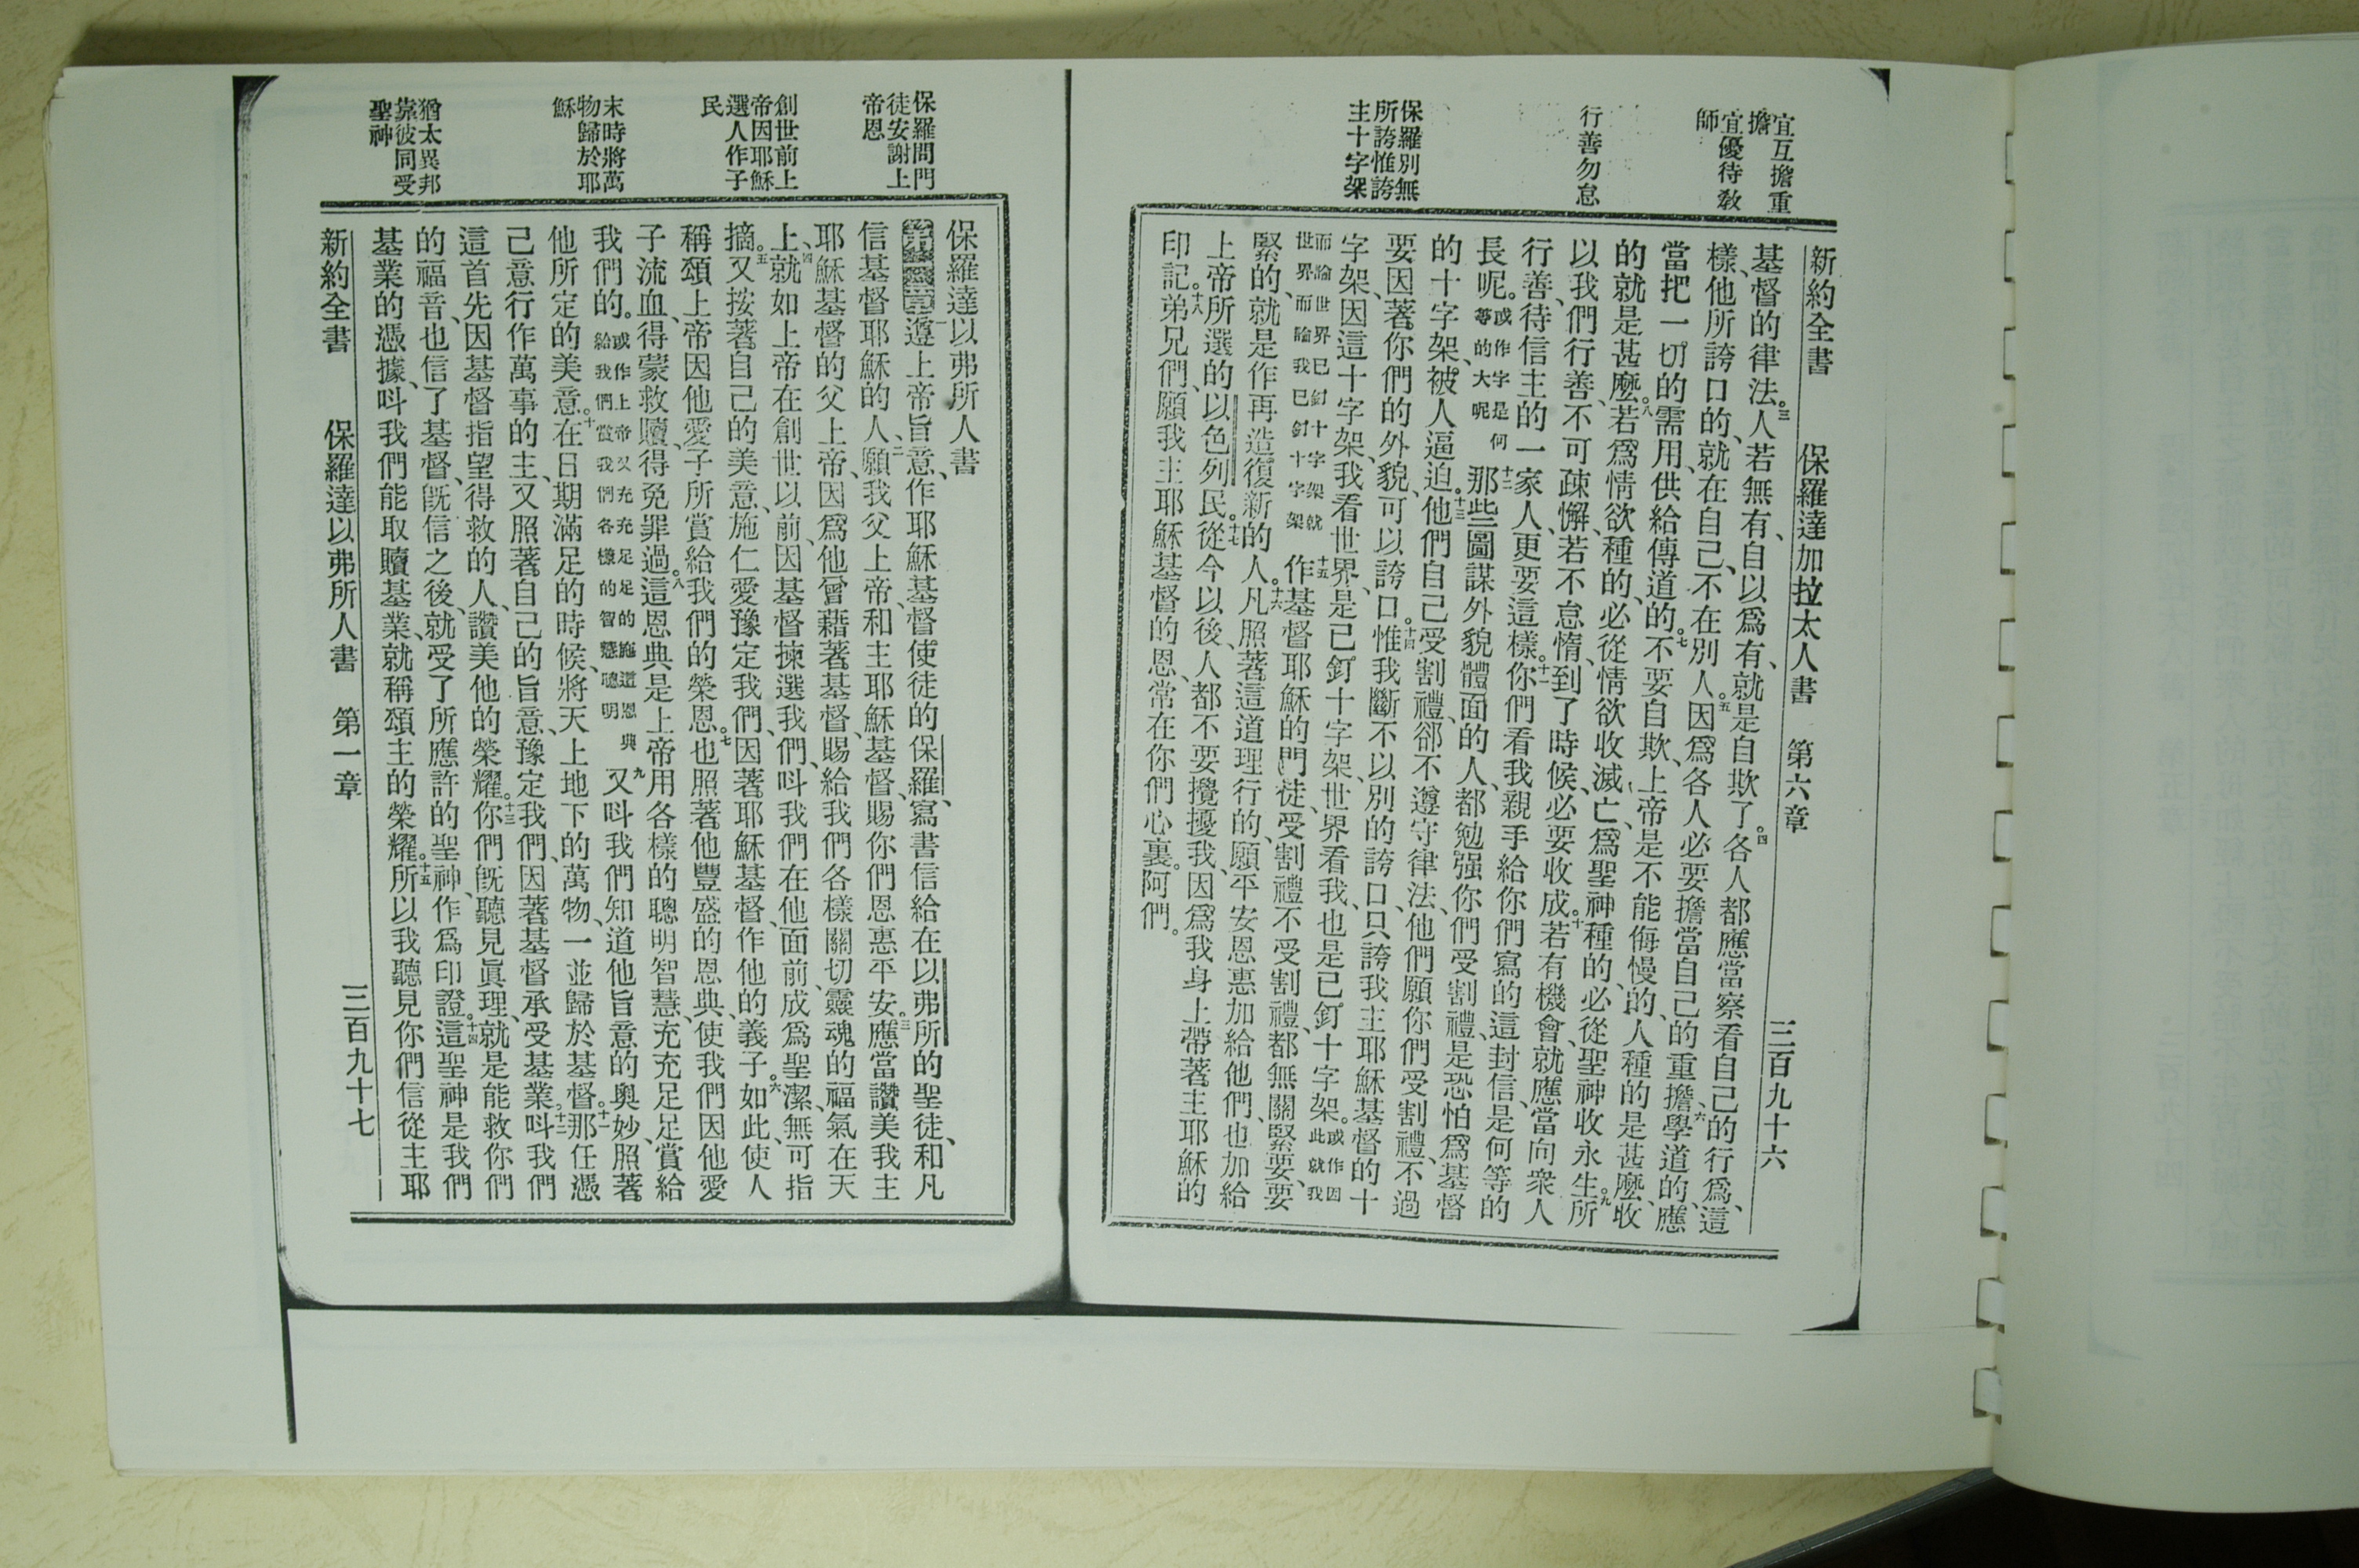 宜互擔重
擔
宜優待教
師
行善勿怠
保羅別無
所誇惟誇
主十字架
新約全書 保羅達加拉太人書 第六章 三百九十六
基督的律法。三人若無有、自以爲有、就是自欺了。四各人都應當察看自己的行爲、這
樣、他所誇口的、就在自己、不在別人。五因爲各人必要擔當自己的重擔、六學道的、應
當把一切的需用、供給傳道的。七不要自欺、上帝是不能侮慢的、人種的是甚麼、收
的就是甚麼。八若爲情欲種的、必從情欲收滅亡、爲聖神種的、必從聖神收永生。九所
以我們行善、不可疎懈、若不怠惰、到了時候、必要收成。十若有機會、就應當向衆人
行善、待信主的一家人、更要這樣。十一你們看我親手給你們寫的這封信、是何等的
長呢。或作字是何等的大呢十二那些圖謀外貌體面的人、都勉强你們受割禮、是恐怕爲基督
的十字架、被人逼迫。十三他們自己受割禮、郤不遵守律法、他們願你們受割禮、不過
要因著你們的外貌、可以誇口。十四惟我斷不以別的誇口、只誇我主耶穌基督的十
字架、因這十字架、我看世界、是已釘十字架、世界看我、也是已釘十字架。或作因此就我
而論世界已釘十字架就世界而論我已釘十字架十五作基督耶穌的門徒、受割禮不受割禮、都無關緊要、要
緊的、就是作再造復新的人。十六凡照著這道理行的、願平安恩惠加給他們、也加給
上帝所選的以色列民。十七從今以後、人都不要攪擾我、因爲我身上帶著主耶穌的
印記。十八弟兄們、願我主耶穌基督的恩、常在你們心裏。阿們。
保羅問門
徒安謝上
帝恩
創世前上
帝因耶穌
選人作子
民
末時將萬
物歸於耶
穌
猶太異邦
靠彼同受
聖神
保羅達以弗所人書
第一章一遵上帝旨意、作耶穌基督使徒的保羅、寫書信給在以弗所的聖徒、和凡
信基督耶穌的人、二願我父上帝、和主耶穌基督、賜你們恩惠平安。三應當讚美我主
耶穌基督的父上帝、因爲他曾藉著基督、賜給我們各樣關切靈魂的福氣在天
上、四就如上帝在創世以前、因基督揀選我們、呌我們在他面前、成爲聖潔、無可指
摘。五又按著自己的美意、施仁愛豫定我們、因著耶穌基督、作他的義子。六如此、使人
稱頌上帝因他愛子所賞給我們的榮恩。七也照著他豐盛的恩典、使我們因他愛
子流血、得蒙救贖、得免罪過。八這恩典是上帝用各樣的聰明智慧、充充足足賞給
我們的。或作上帝又充充足足的施這恩典給我們賞我們各樣的智慧聰明九又呌我們知道他旨意的奧妙、照著
他所定的美意。十在日期滿足的時候、將天上地下的萬物、一並歸於基督。十一那任憑
己意行作萬事的主、又照著自己的旨意、豫定我們、因著基督承受基業。十二呌我們
這首先因基督指望得救的人、讚美他的榮耀。十三你們旣聽見眞理、就是能救你們
的福音、也信了基督、旣信之後、就受了所應許的聖神、作爲印證。十四這聖神是我們
基業的憑據、呌我們能取贖基業、就稱頌主的榮耀。十五所以我聽見你們信從主耶
新約全書 保羅達以弗所人書 第一章 三百九十七